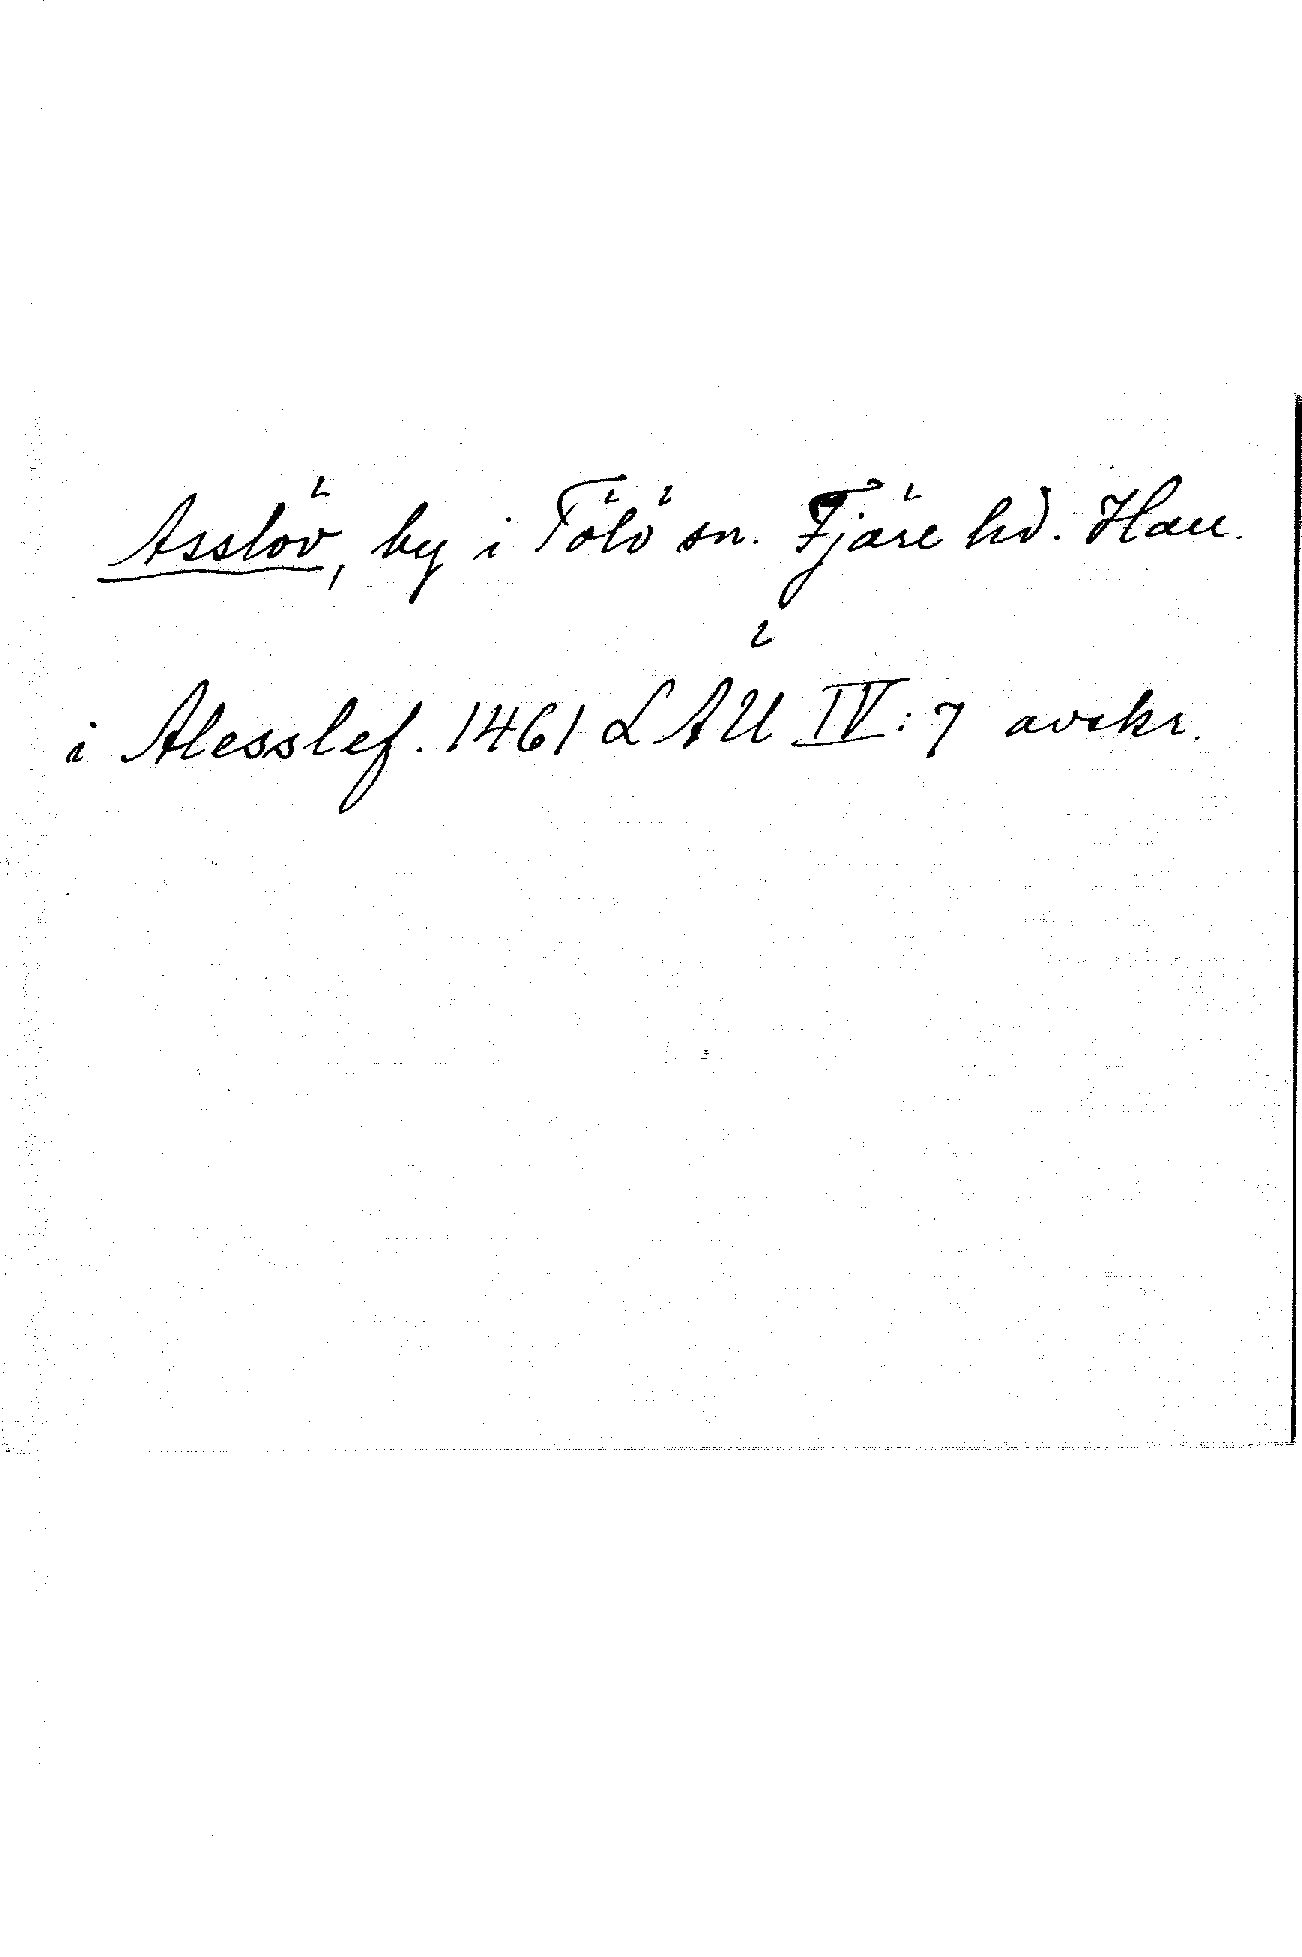 Asslöv, by i Tölö sn. Fjäre hd. Hall.
i Alesslef. 1461 LÄU IV:7 avskr.